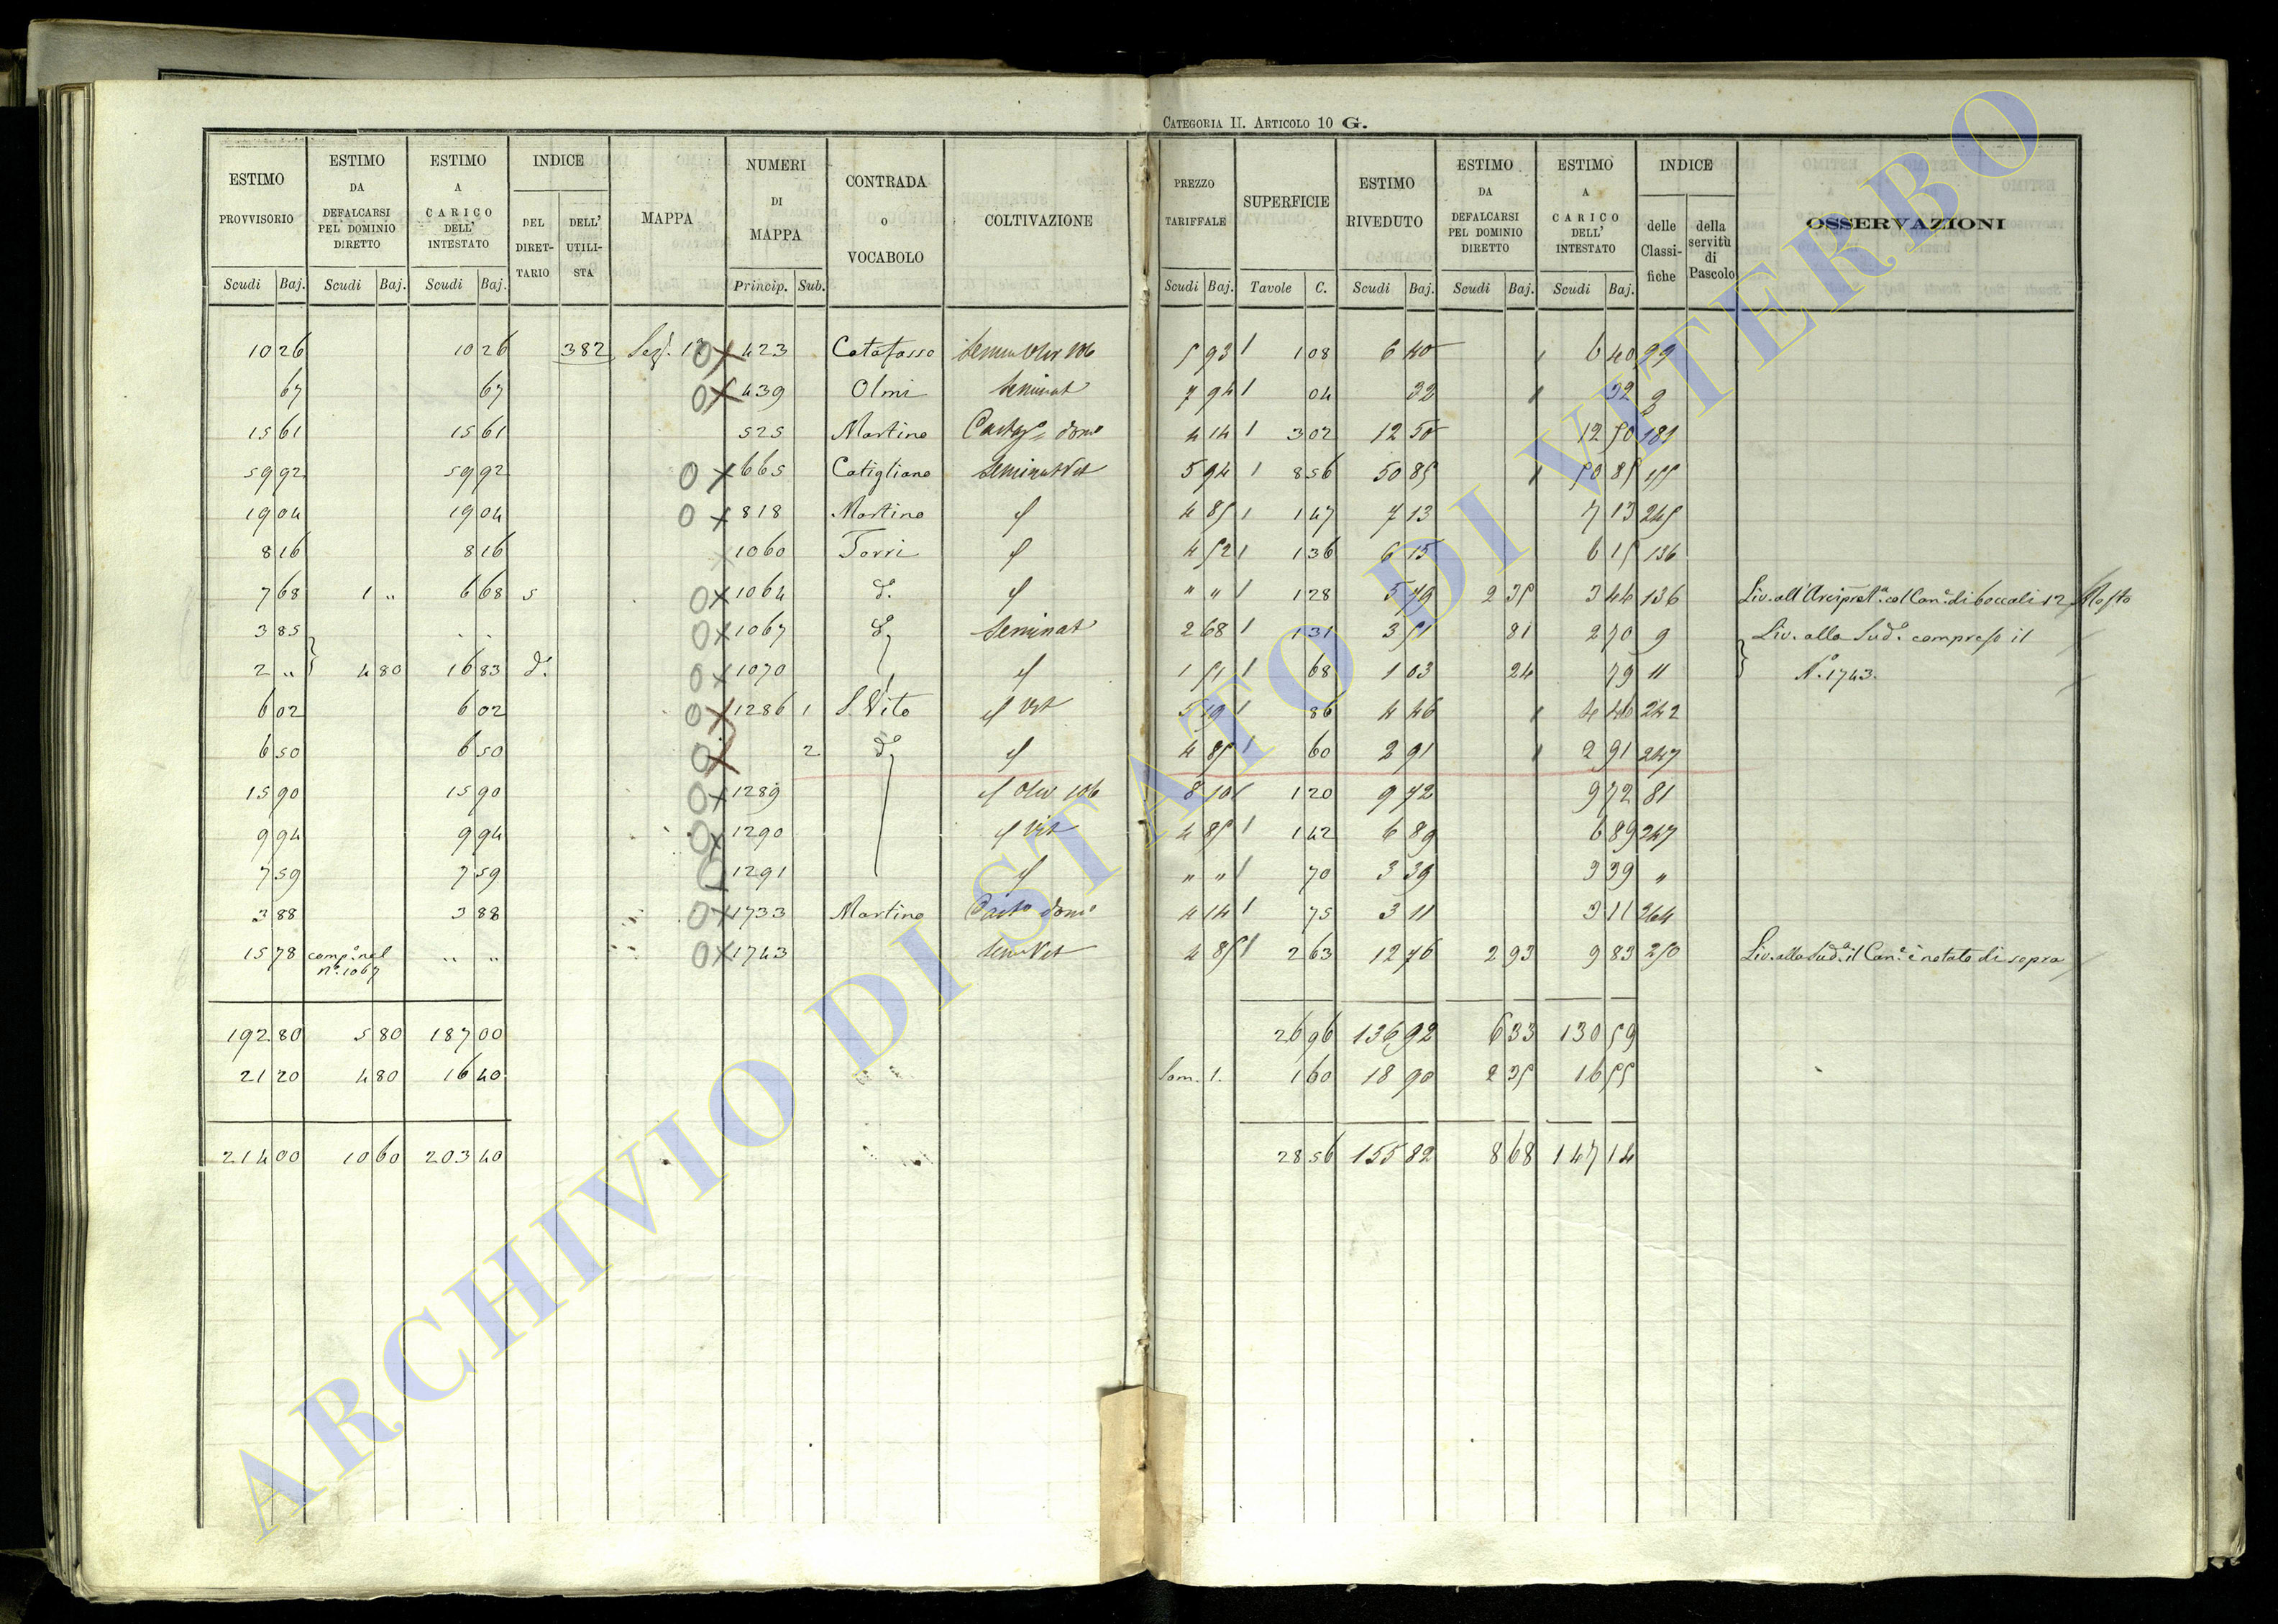 CATEGORIA II. ARTICOLO 10 G.
ESTIMO PROVVISORIO Scudi Baj. | ESTIMO DA DEFALCARSI PEL DOMINIO DIRETTO Scudi Baj. | ESTIMO A CARICO DELL' INTESTATO Scudi Baj. | INDICE DEL DIRETTARIO DELL' UTILISTA | MAPPA | NUMERI DI MAPPA Princip. Sub. | CONTRADA o VOCABOLO | COLTIVAZIONE | PREZZO TARIFFALE Scudi Baj. | SUPERFICIE Tavole C. | ESTIMO RIVEDUTO Scudi Baj. | ESTIMO DA DEFALCARSI PEL DOMINIO DIRETTO Scudi Baj. | ESTIMO A CARICO DELL' INTESTATO Scudi Baj. | INDICE delle Classifiche della servitù di Pascolo | OSSERVAZIONI
10 26 10 26 382 423 5 93 1 1 08 6 40 6 40 29
67 67 439 Olmi Seminat 7 94 1 04 32 32 2
15 61 15 61 525 Martino 4 14 1 3 02 12 50 12 50
59 92 59 92 665 Catigliano Seminat Vit 5 94 1 8 56 50 85 50 85 155
19 04 19 04 818 Martino 4 85 1 1 47 7 13 7 13 245
8 16 8 16 1060 Torri 4 52 1 1 36 6 15 6 15 136
7 68 1 " 6 68 5 1064 d.° " " 1 1 28 5 79 2 35 3 44 136 Liv. all' Arcipret.ª col Can.e di boccali 12 Mosto
3 85 1067 d.° Seminat 2 68 1 1 31 3 51 81 2 70 9 Liv. alla Sud.ª compreso il
2 " 4 80 16 83 d.° 1070 1 51 1 68 1 03 24 79 11 N.° 1743.
6 02 6 02 1286 1 S. Vito Vit 5 19 1 86 4 46 4 46 242
6 50 6 50 2 d.° 4 85 1 60 2 91 2 91 247
15 90 15 90 1289 8 10 1 1 20 9 72 9 72 81
9 94 9 94 1290 Vit 4 85 1 1 42 6 89 6 89 247
7 59 7 59 1291 " " 1 70 3 39 3 39 "
3 88 3 88 1733 Martino 4 14 1 75 3 11 3 11 264
15 78 comp.° nel n.° 1067 " " 1743 Sem Vit 4 85 1 2 63 12 76 2 93 9 83 250 Liv. alla Sud.ª il Can.e è notato di sopra
192 80 5 80 187 00 26 96 136 92 6 33 130 59
21 20 4 80 16 40 Som. 1. 1 60 18 90 2 35 16 55
214 00 10 60 203 40 28 56 155 82 8 68 147 14
ARCHIVIO DI STATO DI VITERBO